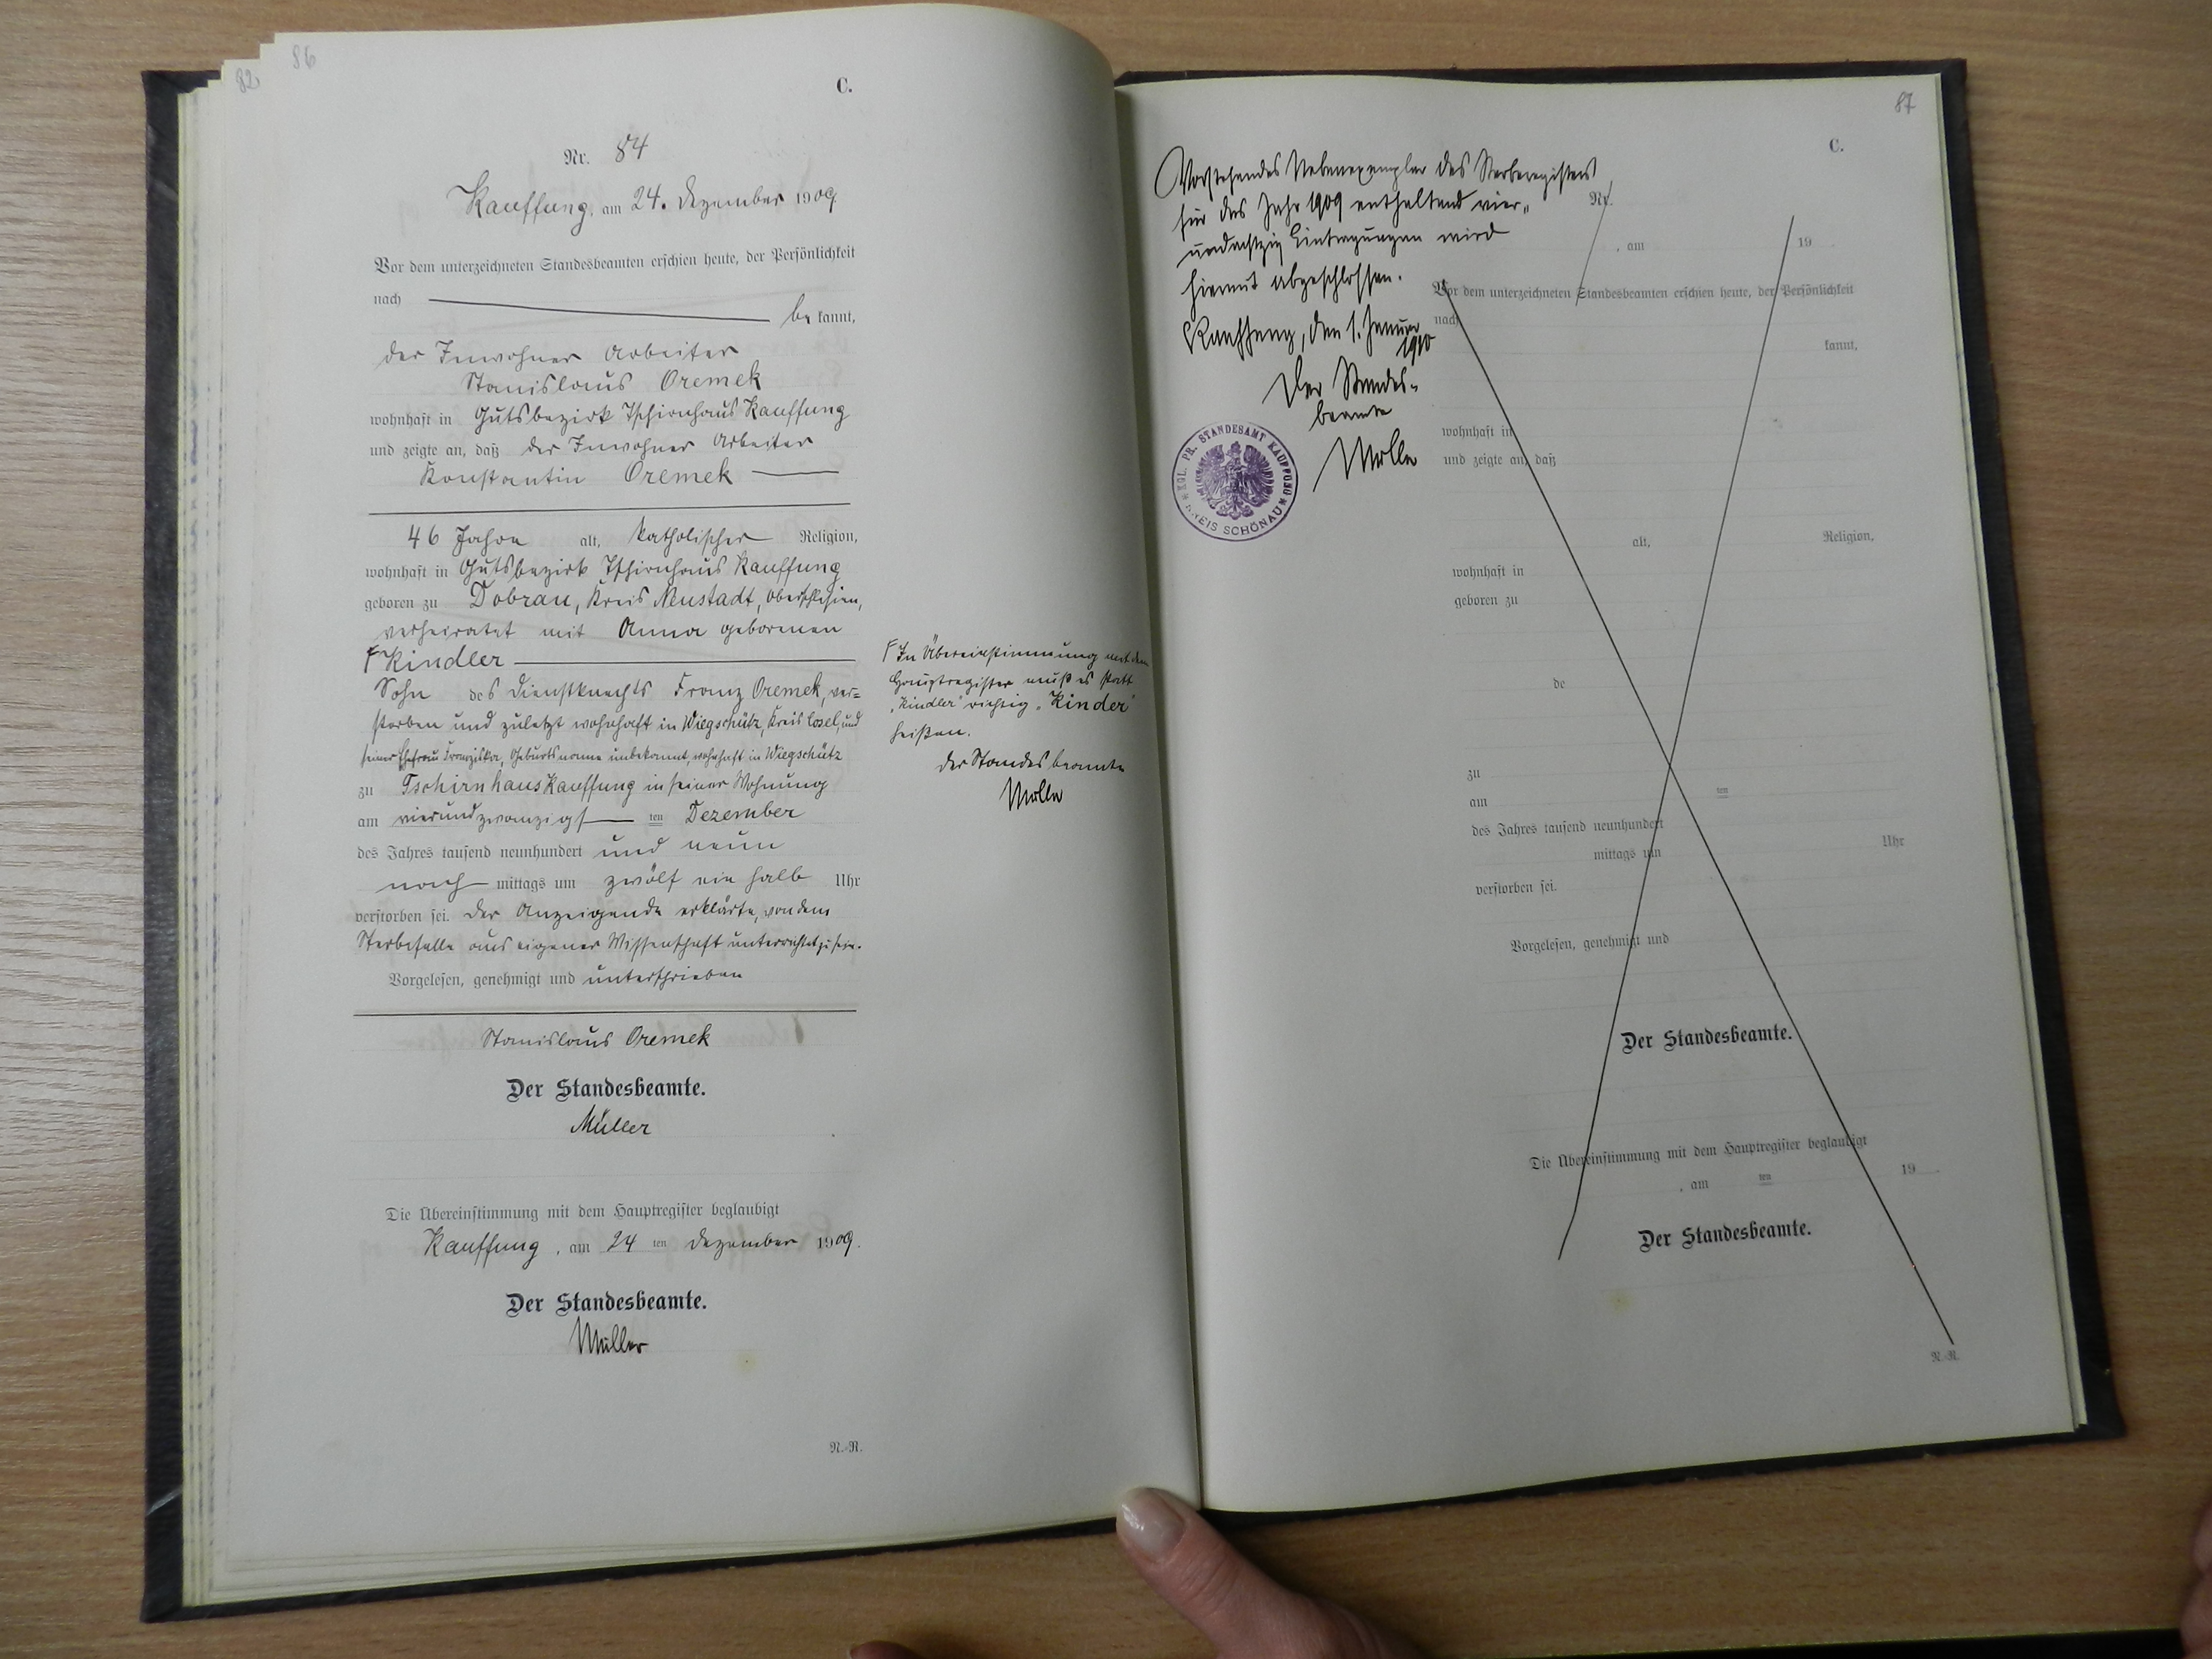 82
86
C.
Nr. 84
Kauffung, am 24. Dezember 1909
Vor dem unterzeichneten Standesbeamten erschien heute, der Persönlichkeit
nach be kannt,
der Inwohner Arbeiter
Stanislaus Oremek
wohnhaft in Gutsbezirk Tschirnhaus Kauffung
und zeigte an, daß der Inwohner Arbeiter
Konstantin Oremek
46 Jahre alt, katholischer Religion,
wohnhaft in Gutsbezirk Tschirnhaus Kauffung
geboren zu Dobrau, Kreis Neustadt, Oberschlesien,
verheiratet mit Anna geborenen
Γ Kindler
Sohn des Dienstknechts Franz Oremek, ver=
storben und zuletzt wohnhaft in Wiegschütz, Kreis Cosel, und
seiner Ehefrau Franziska, Geburtsname unbekannt, wohnhaft in Wiegschütz
zu Tschirnhaus Kauffung in seiner Wohnung
am vierundzwanzigs ten Dezember
des Jahres tausend neunhundert und neun
nach mittags um zwölf ein halb Uhr
verstorben sei. Der Anzeigende erklärte, von dem
Sterbefalle aus eigener Wissenschaft unterrichtet zu sein.
Vorgelesen, genehmigt und unterschrieben
Stanislaus Oremek
Der Standesbeamte.
Müller
Die Übereinstimmung mit dem Hauptregister beglaubigt
Kauffung, am 24 ten Dezember 1909.
Der Standesbeamte.
Müller
N.-R.
Γ In Übereinstimmung mit dem
Hauptregister muß es statt
„Kindler" richtig „Kinder"
heißen.
Der Standesbeamte
Molle
87
C.
Vorstehendes Nebenexemplar des Sterberegisters
für das Jahr 1909 enthaltend vier=
undachtzig Eintragungen wird
hiermit abgeschlossen.
Kauffung, den 1. Januar
1910
Der Standes=
beamte
Molle
KGL. PR. STANDESAMT KAUFFUNG
KREIS SCHÖNAU
Nr.
, am 19
Vor dem unterzeichneten Standesbeamten erschien heute, der Persönlichkeit
nach
kannt,
wohnhaft in
und zeigte an, daß
alt, Religion,
wohnhaft in
geboren zu
de
zu
am ten
des Jahres tausend neunhundert
mittags um Uhr
verstorben sei.
Vorgelesen, genehmigt und
Der Standesbeamte.
Die Übereinstimmung mit dem Hauptregister beglaubigt
, am ten 19
Der Standesbeamte.
N.-R.